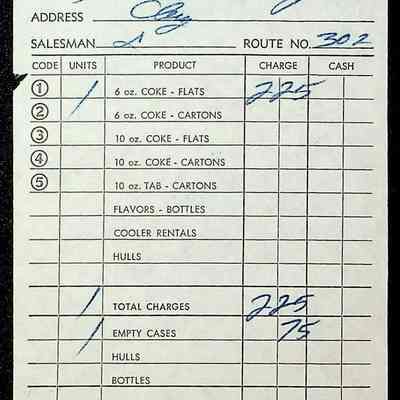 ADDRESS
SALESMAN ROUTE NO. 302
CODE UNITS PRODUCT CHARGE CASH
① 1 6 oz. COKE - FLATS 225
② 6 oz. COKE - CARTONS
③ 10 oz. COKE - FLATS
④ 10 oz. COKE - CARTONS
⑤ 10 oz. TAB - CARTONS
FLAVORS - BOTTLES
COOLER RENTALS
HULLS
1 TOTAL CHARGES 225
1 EMPTY CASES 75
HULLS
BOTTLES